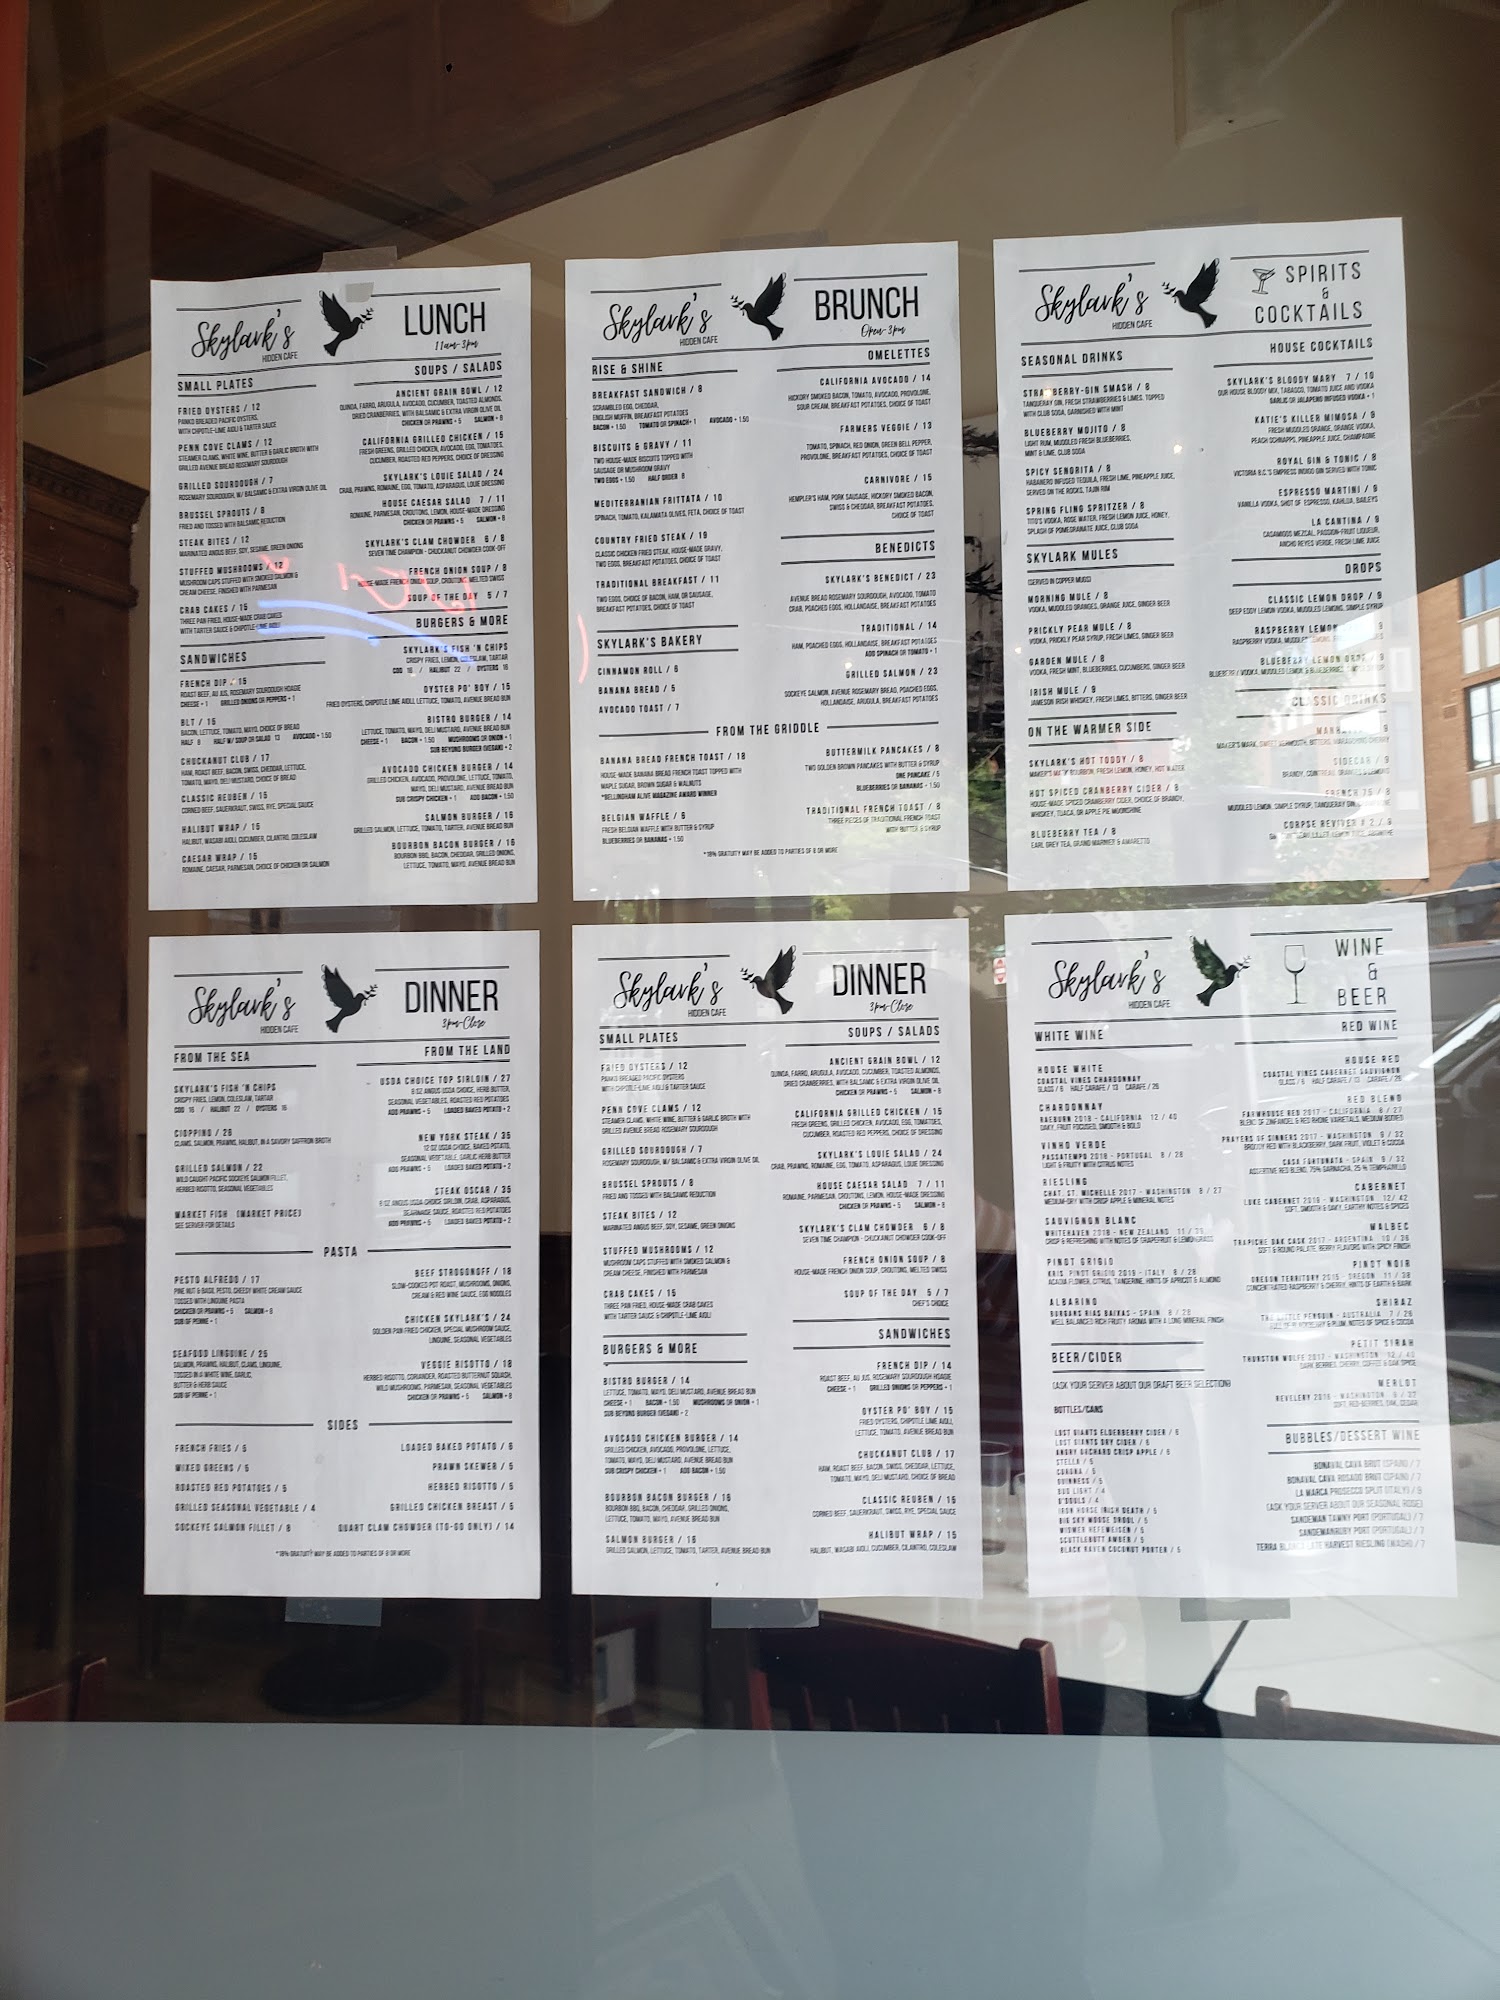 Skylark's
HIDDEN CAFE
LUNCH
11am-3pm
SMALL PLATES
FRIED OYSTERS / 12
PANKO BREADED PACIFIC OYSTERS,
WITH CHIPOTLE-LIME AIOLI & TARTER SAUCE
PENN COVE CLAMS / 12
STEAMER CLAMS, WHITE WINE, BUTTER & GARLIC BROTH WITH
GRILLED AVENUE BREAD ROSEMARY SOURDOUGH
GRILLED SOURDOUGH / 7
ROSEMARY SOURDOUGH, W/ BALSAMIC & EXTRA VIRGIN OLIVE OIL
BRUSSEL SPROUTS / 8
FRIED AND TOSSED WITH BALSAMIC REDUCTION
STEAK BITES / 12
MARINATED ANGUS BEEF, SOY, SESAME, GREEN ONIONS
STUFFED MUSHROOMS / 12
MUSHROOM CAPS STUFFED WITH SMOKED SALMON &
CREAM CHEESE, FINISHED WITH PARMESAN
CRAB CAKES / 15
THREE PAN FRIED, HOUSE-MADE CRAB CAKES
WITH TARTER SAUCE & CHIPOTLE-LIME AIOLI
SANDWICHES
FRENCH DIP / 15
ROAST BEEF, AU JUS, ROSEMARY SOURDOUGH HOAGIE
CHEESE + 1 GRILLED ONIONS OR PEPPERS + 1
BLT / 15
BACON, LETTUCE, TOMATO, MAYO, CHOICE OF BREAD
HALF 8 HALF W/ SOUP OR SALAD 13 AVOCADO + 1.50
CHUCKANUT CLUB / 17
HAM, ROAST BEEF, BACON, SWISS, CHEDDAR, LETTUCE,
TOMATO, MAYO, DELI MUSTARD, CHOICE OF BREAD
CLASSIC REUBEN / 15
CORNED BEEF, SAUERKRAUT, SWISS, RYE, SPECIAL SAUCE
HALIBUT WRAP / 15
HALIBUT, WASABI AIOLI, CUCUMBER, CILANTRO, COLESLAW
CAESAR WRAP / 15
ROMAINE, CAESAR, PARMESAN, CHOICE OF CHICKEN OR SALMON
SOUPS / SALADS
ANCIENT GRAIN BOWL / 12
QUINOA, FARRO, ARUGULA, AVOCADO, CUCUMBER, TOASTED ALMONDS,
DRIED CRANBERRIES, WITH BALSAMIC & EXTRA VIRGIN OLIVE OIL
CHICKEN OR PRAWNS + 5 SALMON + 8
CALIFORNIA GRILLED CHICKEN / 15
FRESH GREENS, GRILLED CHICKEN, AVOCADO, EGG, TOMATOES,
CUCUMBER, ROASTED RED PEPPERS, CHOICE OF DRESSING
SKYLARK'S LOUIE SALAD / 24
CRAB, PRAWNS, ROMAINE, EGG, TOMATO, ASPARAGUS, LOUIE DRESSING
HOUSE CAESAR SALAD 7 / 11
ROMAINE, PARMESAN, CROUTONS, LEMON, HOUSE-MADE DRESSING
CHICKEN OR PRAWNS + 5 SALMON + 8
SKYLARK'S CLAM CHOWDER 6 / 8
SEVEN TIME CHAMPION - CHUCKANUT CHOWDER COOK-OFF
FRENCH ONION SOUP / 8
HOUSE-MADE FRENCH ONION SOUP, CROUTONS, MELTED SWISS
SOUP OF THE DAY 5 / 7
BURGERS & MORE
SKYLARK'S FISH 'N CHIPS
CRISPY FRIED, LEMON, COLESLAW, TARTAR
COD 16 / HALIBUT 22 / OYSTERS 16
OYSTER PO' BOY / 15
FRIED OYSTERS, CHIPOTLE LIME AIOLI, LETTUCE, TOMATO, AVENUE BREAD BUN
BISTRO BURGER / 14
LETTUCE, TOMATO, MAYO, DELI MUSTARD, AVENUE BREAD BUN
CHEESE + 1 BACON + 1.50 MUSHROOMS OR ONION + 1
SUB BEYOND BURGER (VEGAN) + 2
AVOCADO CHICKEN BURGER / 14
GRILLED CHICKEN, AVOCADO, PROVOLONE, LETTUCE, TOMATO,
MAYO, DELI MUSTARD, AVENUE BREAD BUN
SUB CRISPY CHICKEN + 1 ADD BACON + 1.50
SALMON BURGER / 16
GRILLED SALMON, LETTUCE, TOMATO, TARTER, AVENUE BREAD BUN
BOURBON BACON BURGER / 16
BOURBON BBQ, BACON, CHEDDAR, GRILLED ONIONS,
LETTUCE, TOMATO, MAYO, AVENUE BREAD BUN
Skylark's
HIDDEN CAFE
BRUNCH
Open-3pm
RISE & SHINE
BREAKFAST SANDWICH / 8
SCRAMBLED EGG, CHEDDAR,
ENGLISH MUFFIN, BREAKFAST POTATOES
BACON + 1.50 TOMATO OR SPINACH + 1 AVOCADO + 1.50
BISCUITS & GRAVY / 11
TWO HOUSE-MADE BISCUITS TOPPED WITH
SAUSAGE OR MUSHROOM GRAVY
TWO EGGS + 1.50 HALF ORDER 8
MEDITERRANEAN FRITTATA / 10
SPINACH, TOMATO, KALAMATA OLIVES, FETA, CHOICE OF TOAST
COUNTRY FRIED STEAK / 19
CLASSIC CHICKEN FRIED STEAK, HOUSE-MADE GRAVY,
TWO EGGS, BREAKFAST POTATOES, CHOICE OF TOAST
TRADITIONAL BREAKFAST / 11
TWO EGGS, CHOICE OF BACON, HAM, OR SAUSAGE,
BREAKFAST POTATOES, CHOICE OF TOAST
SKYLARK'S BAKERY
CINNAMON ROLL / 6
BANANA BREAD / 5
AVOCADO TOAST / 7
OMELETTES
CALIFORNIA AVOCADO / 14
HICKORY SMOKED BACON, TOMATO, AVOCADO, PROVOLONE,
SOUR CREAM, BREAKFAST POTATOES, CHOICE OF TOAST
FARMERS VEGGIE / 13
TOMATO, SPINACH, RED ONION, GREEN BELL PEPPER,
PROVOLONE, BREAKFAST POTATOES, CHOICE OF TOAST
CARNIVORE / 15
HEMPLER'S HAM, PORK SAUSAGE, HICKORY SMOKED BACON,
SWISS & CHEDDAR, BREAKFAST POTATOES,
CHOICE OF TOAST
BENEDICTS
SKYLARK'S BENEDICT / 23
AVENUE BREAD ROSEMARY SOURDOUGH, AVOCADO, TOMATO
CRAB, POACHED EGGS, HOLLANDAISE, BREAKFAST POTATOES
TRADITIONAL / 14
HAM, POACHED EGGS, HOLLANDAISE, BREAKFAST POTATOES
ADD SPINACH OR TOMATO + 1
GRILLED SALMON / 23
SOCKEYE SALMON, AVENUE ROSEMARY BREAD, POACHED EGGS,
HOLLANDAISE, ARUGULA, BREAKFAST POTATOES
FROM THE GRIDDLE
BANANA BREAD FRENCH TOAST / 18
HOUSE-MADE BANANA BREAD FRENCH TOAST TOPPED WITH
MAPLE SUGAR, BROWN SUGAR & WALNUTS
*BELLINGHAM ALIVE MAGAZINE AWARD WINNER
BELGIAN WAFFLE / 6
FRESH BELGIAN WAFFLE WITH BUTTER & SYRUP
BLUEBERRIES OR BANANAS + 1.50
BUTTERMILK PANCAKES / 8
TWO GOLDEN BROWN PANCAKES WITH BUTTER & SYRUP
ONE PANCAKE / 5
BLUEBERRIES OR BANANAS + 1.50
TRADITIONAL FRENCH TOAST / 8
THREE PIECES OF TRADITIONAL FRENCH TOAST
WITH BUTTER & SYRUP
*18% GRATUITY MAY BE ADDED TO PARTIES OF 8 OR MORE
Skylark's
HIDDEN CAFE
SPIRITS
&
COCKTAILS
SEASONAL DRINKS
STRAWBERRY-GIN SMASH / 8
TANQUERAY GIN, FRESH STRAWBERRIES & LIMES, TOPPED
WITH CLUB SODA, GARNISHED WITH MINT
BLUEBERRY MOJITO / 8
LIGHT RUM, MUDDLED FRESH BLUEBERRIES,
MINT & LIME, CLUB SODA
SPICY SENORITA / 8
HABANERO INFUSED TEQUILA, FRESH LIME, PINEAPPLE JUICE,
SERVED ON THE ROCKS, TAJIN RIM
SPRING FLING SPRITZER / 8
TITO'S VODKA, ROSE WATER, FRESH LEMON JUICE, HONEY,
SPLASH OF POMEGRANATE JUICE, CLUB SODA
SKYLARK MULES
(SERVED IN COPPER MUGS)
MORNING MULE / 8
VODKA, MUDDLED ORANGES, ORANGE JUICE, GINGER BEER
PRICKLY PEAR MULE / 8
VODKA, PRICKLY PEAR SYRUP, FRESH LIMES, GINGER BEER
GARDEN MULE / 8
VODKA, FRESH MINT, BLUEBERRIES, CUCUMBERS, GINGER BEER
IRISH MULE / 9
JAMESON IRISH WHISKEY, FRESH LIMES, BITTERS, GINGER BEER
ON THE WARMER SIDE
SKYLARK'S HOT TODDY / 8
MAKER'S MARK BOURBON, FRESH LEMON, HONEY, HOT WATER
HOT SPICED CRANBERRY CIDER / 8
HOUSE-MADE SPICED CRANBERRY CIDER, CHOICE OF BRANDY,
WHISKEY, TUACA, OR APPLE PIE MOONSHINE
BLUEBERRY TEA / 8
EARL GREY TEA, GRAND MARNIER & AMARETTO
HOUSE COCKTAILS
SKYLARK'S BLOODY MARY 7 / 10
OUR HOUSE BLOODY MIX, TABASCO, TOMATO JUICE AND VODKA
GARLIC OR JALAPENO INFUSED VODKA + 1
KATIE'S KILLER MIMOSA / 9
FRESH MUDDLED ORANGE, ORANGE VODKA,
PEACH SCHNAPPS, PINEAPPLE JUICE, CHAMPAGNE
ROYAL GIN & TONIC / 8
VICTORIA B.C.'S EMPRESS INDIGO GIN SERVED WITH TONIC
ESPRESSO MARTINI / 9
VANILLA VODKA, SHOT OF ESPRESSO, KAHLUA, BAILEYS
LA CANTINA / 9
CASAMIGOS MEZCAL, PASSION-FRUIT LIQUEUR,
ANCHO REYES VERDE, FRESH LIME JUICE
DROPS
CLASSIC LEMON DROP / 9
DEEP EDDY LEMON VODKA, MUDDLED LEMONS, SIMPLE SYRUP
RASPBERRY LEMON
RASPBERRY VODKA, MUDDLED LEMONS
BLUEBERRY LEMON DROP / 9
BLUEBERRY VODKA, MUDDLED LEMON & BLUEBERRIES, SIMPLE SYRUP
CLASSIC DRINKS
MAKER'S MARK, SWEET VERMOUTH, BITTERS, MARASCHINO CHERRY
SIDECAR / 9
BRANDY, COINTREAU
FRENCH 75 / 8
MUDDLED LEMON, SIMPLE SYRUP, TANQUERAY GIN,
CORPSE REVIVER # 2 / 9
Skylark's
HIDDEN CAFE
DINNER
3pm-Close
FROM THE SEA
SKYLARK'S FISH 'N CHIPS
CRISPY FRIES, LEMON, COLESLAW, TARTAR
COD 16 / HALIBUT 22 / OYSTERS 16
CIOPPINO / 26
CLAMS, SALMON, PRAWNS, HALIBUT, IN A SAVORY SAFFRON BROTH
GRILLED SALMON / 22
WILD CAUGHT PACIFIC SOCKEYE SALMON FILLET,
HERBED RISOTTO, SEASONAL VEGETABLES
MARKET FISH (MARKET PRICE)
SEE SERVER FOR DETAILS
FROM THE LAND
USDA CHOICE TOP SIRLOIN / 27
8 OZ ANGUS USDA CHOICE, HERB BUTTER,
SEASONAL VEGETABLES, ROASTED RED POTATOES
ADD PRAWNS + 5 LOADED BAKED POTATO + 2
NEW YORK STEAK / 35
12 OZ USDA CHOICE, BAKED POTATO,
SEASONAL VEGETABLE, GARLIC HERB BUTTER
ADD PRAWNS + 5 LOADED BAKED POTATO + 2
STEAK OSCAR / 35
8 OZ ANGUS USDA CHOICE SIRLOIN, CRAB, ASPARAGUS,
BEARNAISE SAUCE, ROASTED RED POTATOES
ADD PRAWNS + 5 LOADED BAKED POTATO + 2
PASTA
PESTO ALFREDO / 17
PINE NUT & BASIL PESTO, CHEESY WHITE CREAM SAUCE
TOSSED WITH LINGUINE PASTA
CHICKEN OR PRAWNS + 5 SALMON + 8
SUB GF PENNE + 1
SEAFOOD LINGUINE / 25
SALMON, PRAWNS, HALIBUT, CLAMS, LINGUINE,
TOSSED IN A WHITE WINE, GARLIC,
BUTTER & HERB SAUCE
SUB GF PENNE + 1
BEEF STROGONOFF / 18
SLOW-COOKED POT ROAST, MUSHROOMS, ONIONS,
CREAM & RED WINE SAUCE, EGG NOODLES
CHICKEN SKYLARK'S / 24
GOLDEN PAN FRIED CHICKEN, SPECIAL MUSHROOM SAUCE,
LINGUINE, SEASONAL VEGETABLES
VEGGIE RISOTTO / 18
HERBED RISOTTO, CORIANDER, ROASTED BUTTERNUT SQUASH,
WILD MUSHROOMS, PARMESAN, SEASONAL VEGETABLES
CHICKEN OR PRAWNS + 5 SALMON + 8
SIDES
FRENCH FRIES / 5
MIXED GREENS / 5
ROASTED RED POTATOES / 5
GRILLED SEASONAL VEGETABLE / 4
SOCKEYE SALMON FILLET / 8
LOADED BAKED POTATO / 6
PRAWN SKEWER / 5
HERBED RISOTTO / 5
GRILLED CHICKEN BREAST / 5
QUART CLAM CHOWDER (TO-GO ONLY) / 14
*18% GRATUITY MAY BE ADDED TO PARTIES OF 8 OR MORE
Skylark's
HIDDEN CAFE
DINNER
3pm-Close
SMALL PLATES
FRIED OYSTERS / 12
PANKO BREADED PACIFIC OYSTERS
WITH CHIPOTLE-LIME AIOLI & TARTER SAUCE
PENN COVE CLAMS / 12
STEAMER CLAMS, WHITE WINE, BUTTER & GARLIC BROTH WITH
GRILLED AVENUE BREAD ROSEMARY SOURDOUGH
GRILLED SOURDOUGH / 7
ROSEMARY SOURDOUGH, W/ BALSAMIC & EXTRA VIRGIN OLIVE OIL
BRUSSEL SPROUTS / 8
FRIED AND TOSSED WITH BALSAMIC REDUCTION
STEAK BITES / 12
MARINATED ANGUS BEEF, SOY, SESAME, GREEN ONIONS
STUFFED MUSHROOMS / 12
MUSHROOM CAPS STUFFED WITH SMOKED SALMON &
CREAM CHEESE, FINISHED WITH PARMESAN
CRAB CAKES / 15
THREE PAN FRIED, HOUSE-MADE CRAB CAKES
WITH TARTER SAUCE & CHIPOTLE-LIME AIOLI
BURGERS & MORE
BISTRO BURGER / 14
LETTUCE, TOMATO, MAYO, DELI MUSTARD, AVENUE BREAD BUN
CHEESE + 1 BACON + 1.50 MUSHROOMS OR ONION + 1
SUB BEYOND BURGER (VEGAN) + 2
AVOCADO CHICKEN BURGER / 14
GRILLED CHICKEN, AVOCADO, PROVOLONE, LETTUCE,
TOMATO, MAYO, DELI MUSTARD, AVENUE BREAD BUN
SUB CRISPY CHICKEN + 1 ADD BACON + 1.50
BOURBON BACON BURGER / 16
BOURBON BBQ, BACON, CHEDDAR, GRILLED ONIONS,
LETTUCE, TOMATO, MAYO, AVENUE BREAD BUN
SALMON BURGER / 16
GRILLED SALMON, LETTUCE, TOMATO, TARTER, AVENUE BREAD BUN
SOUPS / SALADS
ANCIENT GRAIN BOWL / 12
QUINOA, FARRO, ARUGULA, AVOCADO, CUCUMBER, TOASTED ALMONDS,
DRIED CRANBERRIES, WITH BALSAMIC & EXTRA VIRGIN OLIVE OIL
CHICKEN OR PRAWNS + 5 SALMON + 8
CALIFORNIA GRILLED CHICKEN / 15
FRESH GREENS, GRILLED CHICKEN, AVOCADO, EGG, TOMATOES,
CUCUMBER, ROASTED RED PEPPERS, CHOICE OF DRESSING
SKYLARK'S LOUIE SALAD / 24
CRAB, PRAWNS, ROMAINE, EGG, TOMATO, ASPARAGUS, LOUIE DRESSING
HOUSE CAESAR SALAD 7 / 11
ROMAINE, PARMESAN, CROUTONS, LEMON, HOUSE-MADE DRESSING
CHICKEN OR PRAWNS + 5 SALMON + 8
SKYLARK'S CLAM CHOWDER 6 / 8
SEVEN TIME CHAMPION - CHUCKANUT CHOWDER COOK-OFF
FRENCH ONION SOUP / 8
HOUSE-MADE FRENCH ONION SOUP, CROUTONS, MELTED SWISS
SOUP OF THE DAY 5 / 7
CHEF'S CHOICE
SANDWICHES
FRENCH DIP / 14
ROAST BEEF, AU JUS, ROSEMARY SOURDOUGH HOAGIE
CHEESE + 1 GRILLED ONIONS OR PEPPERS + 1
OYSTER PO' BOY / 15
FRIED OYSTERS, CHIPOTLE LIME AIOLI,
LETTUCE, TOMATO, AVENUE BREAD BUN
CHUCKANUT CLUB / 17
HAM, ROAST BEEF, BACON, SWISS, CHEDDAR, LETTUCE,
TOMATO, MAYO, DELI MUSTARD, CHOICE OF BREAD
CLASSIC REUBEN / 15
CORNED BEEF, SAUERKRAUT, SWISS, RYE, SPECIAL SAUCE
HALIBUT WRAP / 15
HALIBUT, WASABI AIOLI, CUCUMBER, CILANTRO, COLESLAW
Skylark's
HIDDEN CAFE
WINE
&
BEER
WHITE WINE
HOUSE WHITE
COASTAL VINES CHARDONNAY
GLASS / 6 HALF CARAFE / 13 CARAFE / 26
CHARDONNAY
RAEBURN 2018 - CALIFORNIA 12 / 40
OAKY, FRUIT FOCUSED, SMOOTH & BOLD
VINHO VERDE
PASSATEMPO 2018 - PORTUGAL 8 / 28
LIGHT & FRUITY WITH CITRUS NOTES
RIESLING
CHAT. ST. MICHELLE 2017 - WASHINGTON 8 / 27
MEDIUM-DRY WITH CRISP APPLE & MINERAL NOTES
SAUVIGNON BLANC
WHITEHAVEN 2018 - NEW ZEALAND 11 /
CRISP & REFRESHING WITH NOTES OF GRAPEFRUIT & LEMONGRASS
PINOT GRIGIO
KRIS PINOT GRIGIO 2019 - ITALY 8 / 28
ACACIA FLOWER, CITRUS, TANGERINE, HINTS OF APRICOT & ALMOND
ALBARINO
BURGANS RIAS BAIXAS - SPAIN 8 / 28
WELL BALANCED RICH FRUITY AROMA WITH A LONG MINERAL FINISH
BEER/CIDER
(ASK YOUR SERVER ABOUT OUR DRAFT BEER SELECTION)
BOTTLES/CANS
LOST GIANTS ELDERBERRY CIDER / 6
LOST GIANTS DRY CIDER / 6
ANGRY ORCHARD CRISP APPLE / 6
STELLA / 5
CORONA / 5
GUINNESS / 5
BUD LIGHT / 4
O'DOULS / 4
IRON HORSE IRISH DEATH / 5
BIG SKY MOOSE DROOL / 5
WIDMER HEFEWEIZEN / 5
SCUTTLEBUTT AMBER / 5
BLACK RAVEN COCONUT PORTER / 5
RED WINE
HOUSE RED
COASTAL VINES CABERNET SAUVIGNON
GLASS / 6 HALF CARAFE / 13 CARAFE / 26
RED BLEND
FARMHOUSE RED 2017 - CALIFORNIA 8 / 27
BLEND OF ZINFANDEL & RED RHONE VARIETALS, MEDIUM BODIED
PRAYERS OF SINNERS 2017 - WASHINGTON 9 / 32
BROODY RED WITH BLACKBERRY, DARK FRUIT, VIOLET & COCOA
CASA FORTUNATA - SPAIN 9 / 32
ASSERTIVE RED BLEND, 75% GARNACHA, 25% TEMPRANILLO
CABERNET
LUKE CABERNET 2016 - WASHINGTON 12/ 42
SOFT, SMOOTH & OAKY, EARTHY NOTES & SPICES
MALBEC
TRAPICHE OAK CASK 2017 - ARGENTINA 10 / 36
SOFT & ROUND PALATE, BERRY FLAVORS WITH SPICY FINISH
PINOT NOIR
OREGON TERRITORY 2015 - OREGON 11 / 38
CONCENTRATED RASPBERRY & CHERRY, HINTS OF EARTH & BARK
SHIRAZ
THE LITTLE PENGUIN - AUSTRALIA 7 / 26
FULL OF BLACKBERRY & PLUM, NOTES OF SPICE & COCOA
PETIT SIRAH
THURSTON WOLFE 2017 - WASHINGTON 12 /
DARK BERRIES, CHERRY, COFFEE & OAK SPICE
MERLOT
REVELERY 2016 - WASHINGTON 9 / 37
SOFT, RED-BERRIES, OAK, CEDAR
BUBBLES/DESSERT WINE
BONAVAL CAVA BRUT (SPAIN) / 7
BONAVAL CAVA ROSADO BRUT (SPAIN) / 7
LA MARCA PROSECCO SPLIT (ITALY) / 9
(ASK YOUR SERVER ABOUT OUR SEASONAL ROSE)
SANDEMAN TAWNY PORT (PORTUGAL) / 7
SANDEMANRUBY PORT (PORTUGAL) / 7
TERRA BLANCA LATE HARVEST RIESLING (WASH) / 7